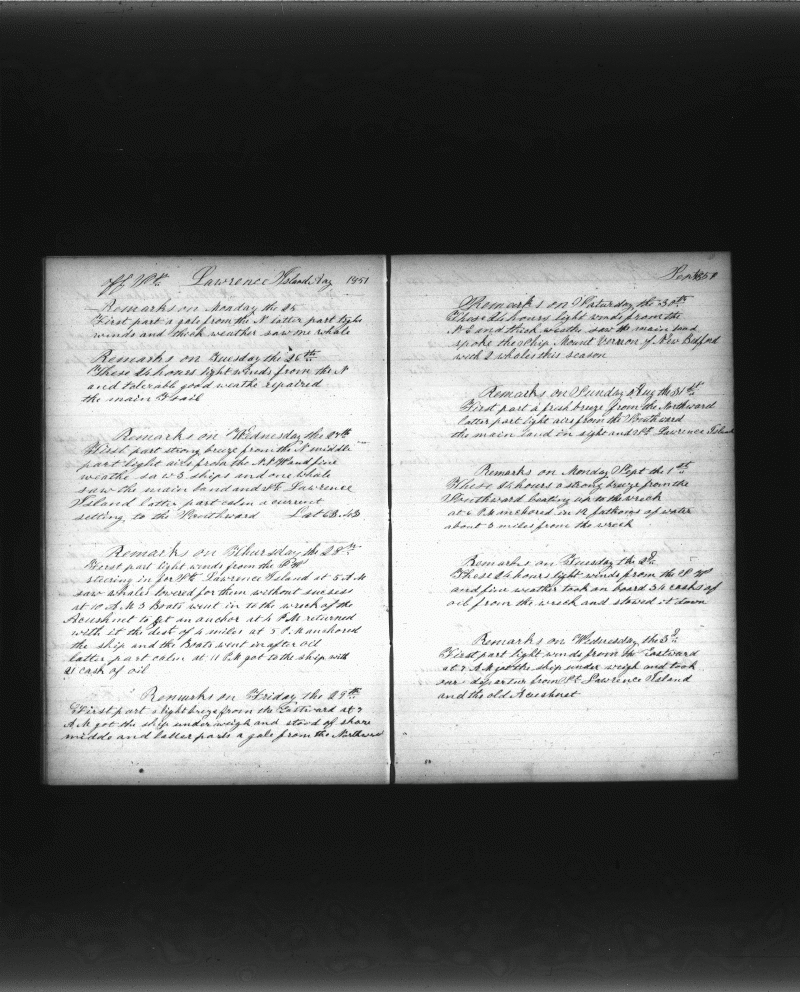 off St. Lawrence Island Aug 1851
Remarks on Monday the 25
First part a gale from the N latter part light
winds and thick weather saw one whale
Remarks on Tuesday the 26th
These 24 hours light winds from the N
and tolerable good weathe repaired
the main
Remarks on Wednesday the 27th
First part strong breeze from the N middle
part light airs from the N.W and fine
weathe saw 3 ships and one whale
saw the main land and St. Lawrence
Island latter part calm a current
setting to the Southward Lat 63.43
Remarks on Thursday the 28th
First part light winds from the
steering in for St Lawrence Island at 5 A.M
saw whales lowered for them without sucsess
at 10 A.M 3 Boats went in to the wreck of the
Acushnet to get an anchor at 4 P.M returned
with it the dist of 4 miles at 5 P.M anchored
the ship and the Boats went in after oil
latter part calm at 11 P.M got to the ship with
21 cask of oil
Remarks on Friday the 29th
First part light breeze from the Eastward at 3
A.M got the ship under weigh and stood of shore
midde and latter parts a gale from the Northward
Sept 1851
Remarks on Saturday the 30th
These 24 hours light winds from the
N.E and thick weathe saw the main land
spoke the ship Mount Vernon of New Bedford
with 2 whales this season
Remarks on Sunday Aug the 31st
First part a fresh breeze from the Northward
latter part light airs from the Southward
the main land in sight and St. Lawrence Island
Remarks on Monday Sept the 1st
These 24 hours a strong breeze from the
Southward beating up to the wreck
at 6 P.M anchored in 12 fathoms of water
about 3 miles from the wreck
Remarks on Tuesday the 2d
These 24 hours light winds from the S.W
and fine weather took on board 34 casks of
oil from the wreck and stowed it down
Remarks on Wednesday the 3d
First part light winds from the Eastward
at 7 A.M got the ship under weigh and took
our departur from St Lawrence Island
and the old Acushnet